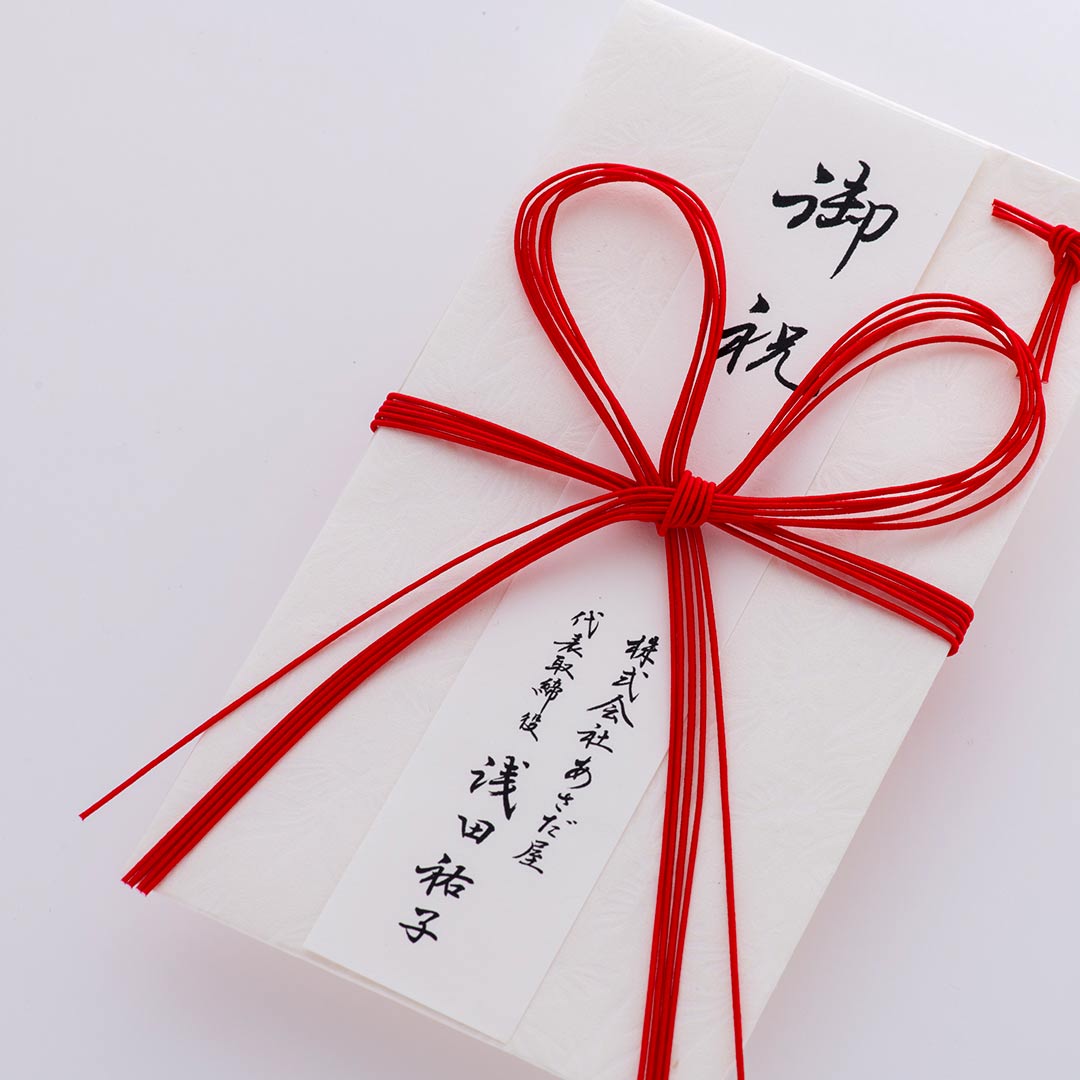 御祝
株式会社あさだ屋
代表取締役
浅田祐子